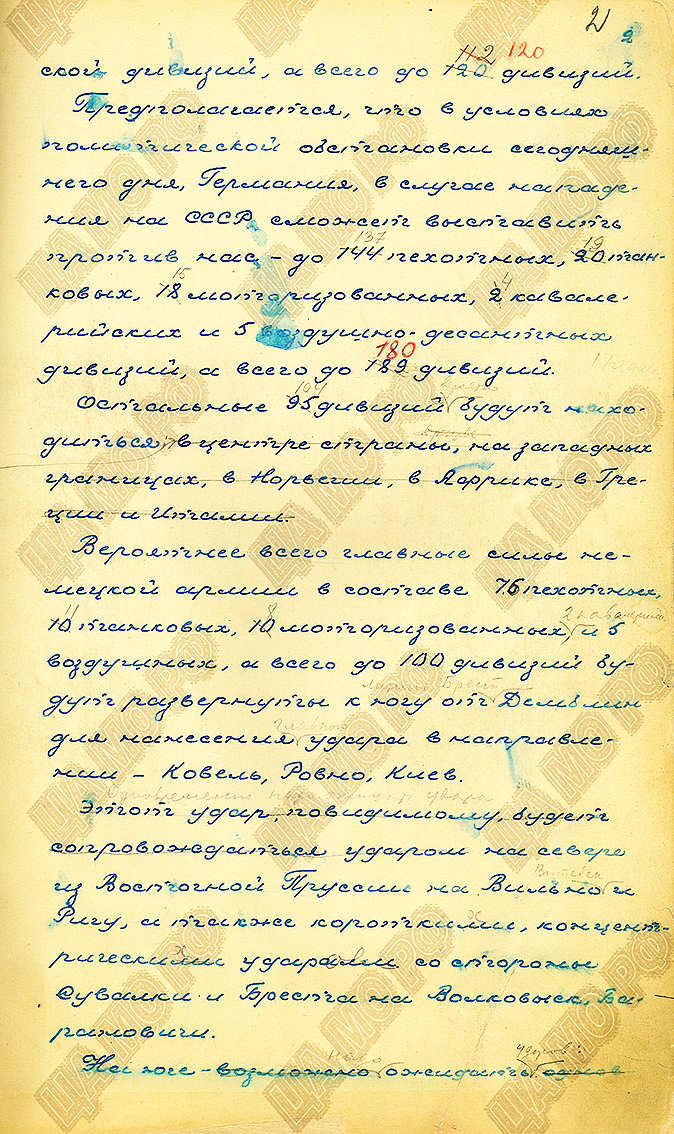 2
2
112 120
ской дивизий, а всего до 120 дивизий.
Предполагается, что в условиях
политической обстановки сегодняш-
него дня, Германия, в случае нападе-
ния на СССР, сможет выставить
137 19
против нас – до 144 пехотных, 20 тан-
15 4
ковых, 18 моторизованных, 2 кавале-
рийских и 5 воздушно-десантных
180
дивизий, а всего до 189 дивизий.
104
Остальные 95 дивизий будут нахо-
диться, в центре страны, на западных
границах, в Норвегии, в Африке, в Гре-
ции и Италии.
Вероятнее всего главные силы не-
мецкой армии в составе 76 пехотных,
11 8 2 кавалерийских
10 танковых, 10 моторизованных, и 5
воздушных, а всего до 100 дивизий бу-
Брест
дут развернуты к югу от Демблин
главного
для нанесения удара в направле-
нии – Ковель, Ровно, Киев.
Одновременно удара
Этот удар, повидимому, будет
сопровождаться ударом на севере
Витебск
из Восточной Пруссии на Вильно и
Ригу, а также короткими, концент-
рическими ударами со стороны
Сувалки и Бреста на Волковыск, Ба-
рановичи.
надо ударов:
На юге – возможно ожидать однов